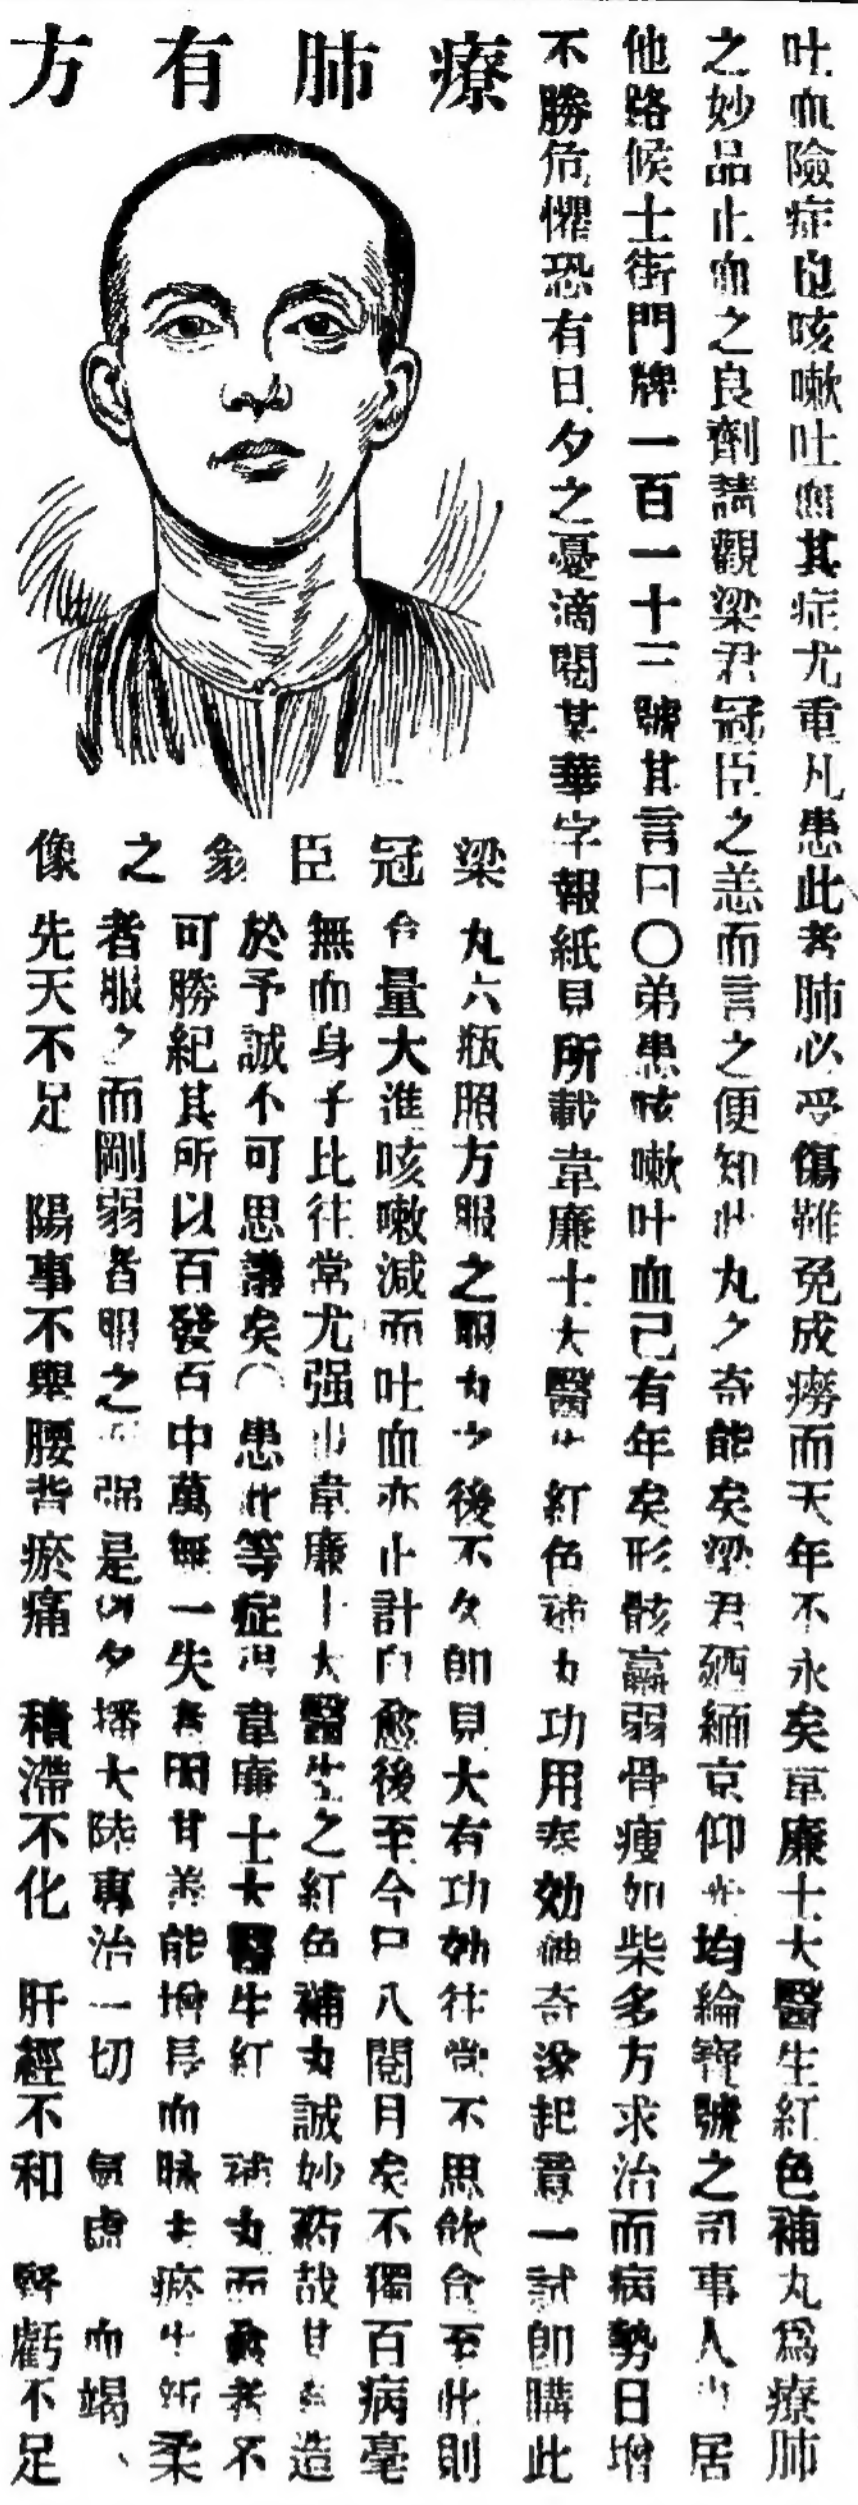 療肺有方
吐血險症也咳嗽吐血其症尤重凡患此者肺必受傷難免成癆而天年不永矣韋廉士大醫生紅色補丸爲療肺
之妙品止血之良劑請觀梁君冠臣之恙而言之便知此丸之奇能矣梁君 緬京仰光均綸寶號之司事人也居
他路候士街門牌一百一十三號其言曰〇弟患咳嗽吐血己有年矣形骸羸弱骨瘦如柴多方求治而病勢日增
不勝危懼恐有日夕之憂滴閱某華字報紙見所載韋廉士大醫生紅色補丸功用奏効神奇深起意一試卽購此
梁冠臣翁之像
丸六瓶照方服之服丸之後不久卽見大有功効往常不思飲食至此則
食量大進咳嗽減而吐血亦止計自愈後至今已八閱月矣不獨百病毫
無而身子比往常尤强也韋廉士大醫生之紅色補丸誠妙药哉其 造
於予誠不可思議矣〇患此等症 韋廉士大醫生紅 補丸而 者不
可勝紀其所以百發百中萬無一失者因其善能增長血 去瘀生新柔
者服之而剛弱者服之而强是以名播大陸專治一切 氣虛 血竭、
先天不足 陽事不舉 腰背瘀痛 積滯不化 肝經不和 腎虧不足